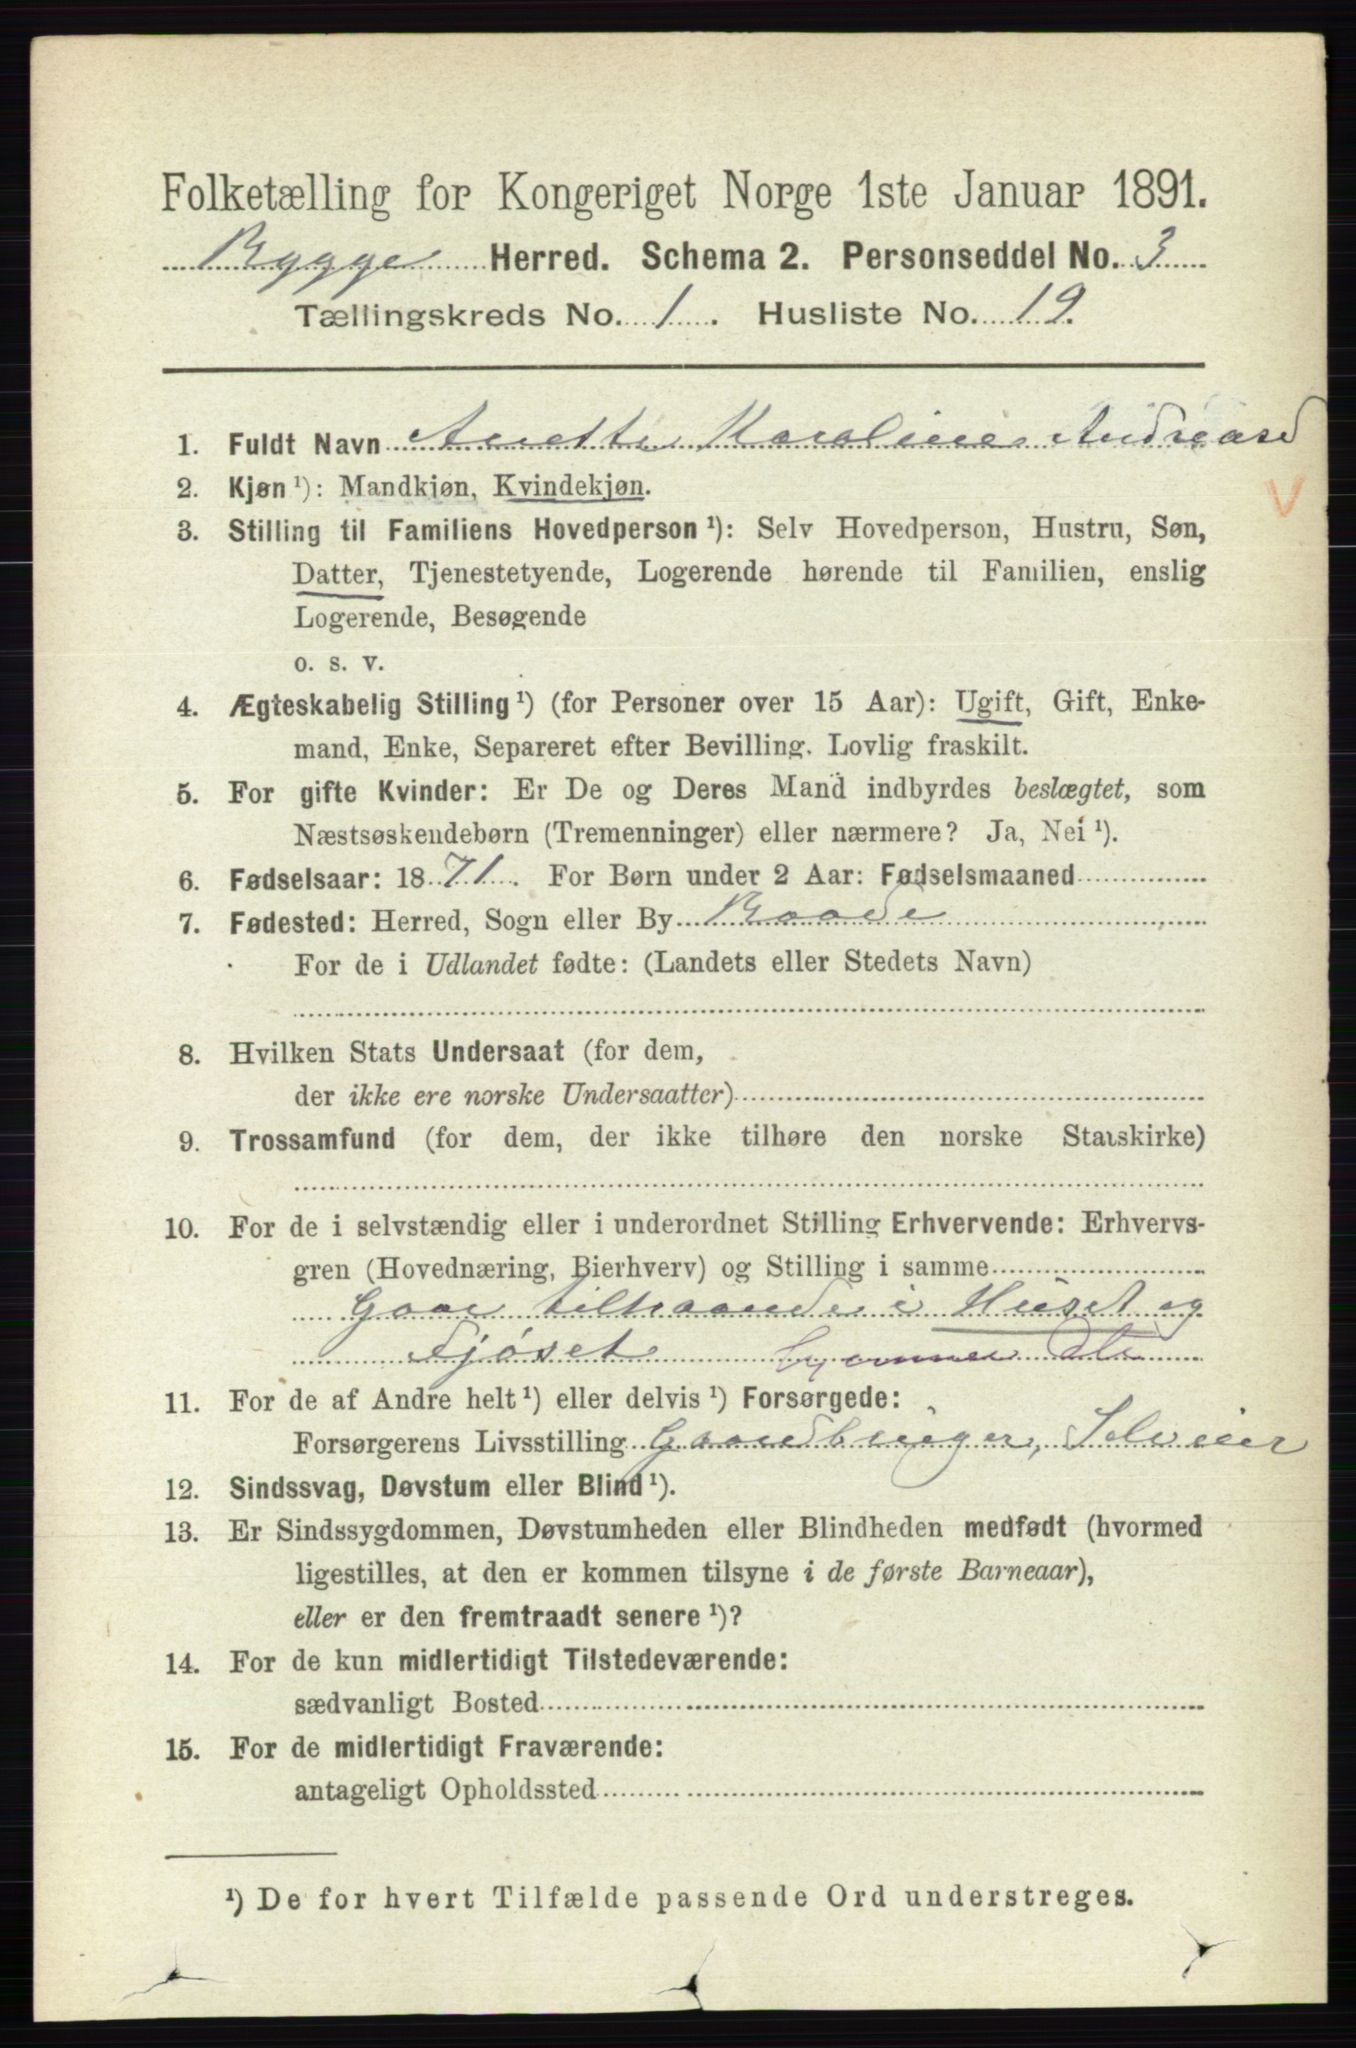 Folketælling for Kongeriget Norge 1ste Januar 1891.
Rygge Herred. Schema 2. Personseddel No. 3
Tællingskreds No. 1. Husliste No. 19.
1. Fuldt Navn Anette Karoline Andreasd
2. Kjøn¹): Mandkjøn, Kvindekjøn.
V
3. Stilling til Familiens Hovedperson¹): Selv Hovedperson, Hustru, Søn,
Datter, Tjenestetyende, Logerende hørende til Familien, enslig
Logerende, Besøgende
o. s. v.
4. Ægteskabelig Stilling¹) (for Personer over 15 Aar): Ugift, Gift, Enke-
mand, Enke, Separeret efter Bevilling. Lovlig fraskilt.
5. For gifte Kvinder: Er De og Deres Mand indbyrdes beslægtet, som
Næstsøskendebørn (Tremenninger) eller nærmere? Ja, Nei¹).
6. Fødselsaar: 1871. For Børn under 2 Aar: Fødselsmaaned
7. Fødested: Herred, Sogn eller By Raade
For de i Udlandet fødte: (Landets eller Stedets Navn)
8. Hvilken Stats Undersaat (for dem,
der ikke ere norske Undersaatter)
9. Trossamfund (for dem, der ikke tilhøre den norske Statskirke)
10. For de i selvstændig eller i underordnet Stilling Erhvervende: Erhvervs-
gren (Hovednæring, Bierhverv) og Stilling i samme
Gaar tilhaande i Huset og
Fjøset
11. For de af Andre helt¹) eller delvis¹) Forsørgede:
Forsørgerens Livsstilling Gaardbruger, Selveier
12. Sindssvag, Døvstum eller Blind¹).
13. Er Sindssygdommen, Døvstumheden eller Blindheden medfødt (hvormed
ligestilles, at den er kommen tilsyne i de første Barneaar),
eller er den fremtraadt senere¹)?
14. For de kun midlertidigt Tilstedeværende:
sædvanligt Bosted
15. For de midlertidigt Fraværende:
antageligt Opholdssted
¹) De for hvert Tilfælde passende Ord understreges.